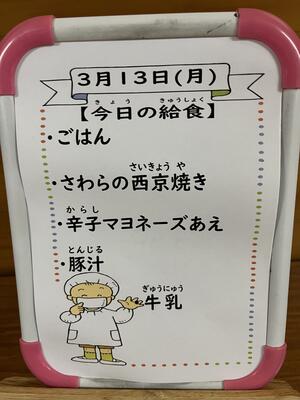 3月13日(月)
【今日の給食】
・ごはん
・さわらの西京焼き
・辛子マヨネーズあえ
・豚汁
牛乳